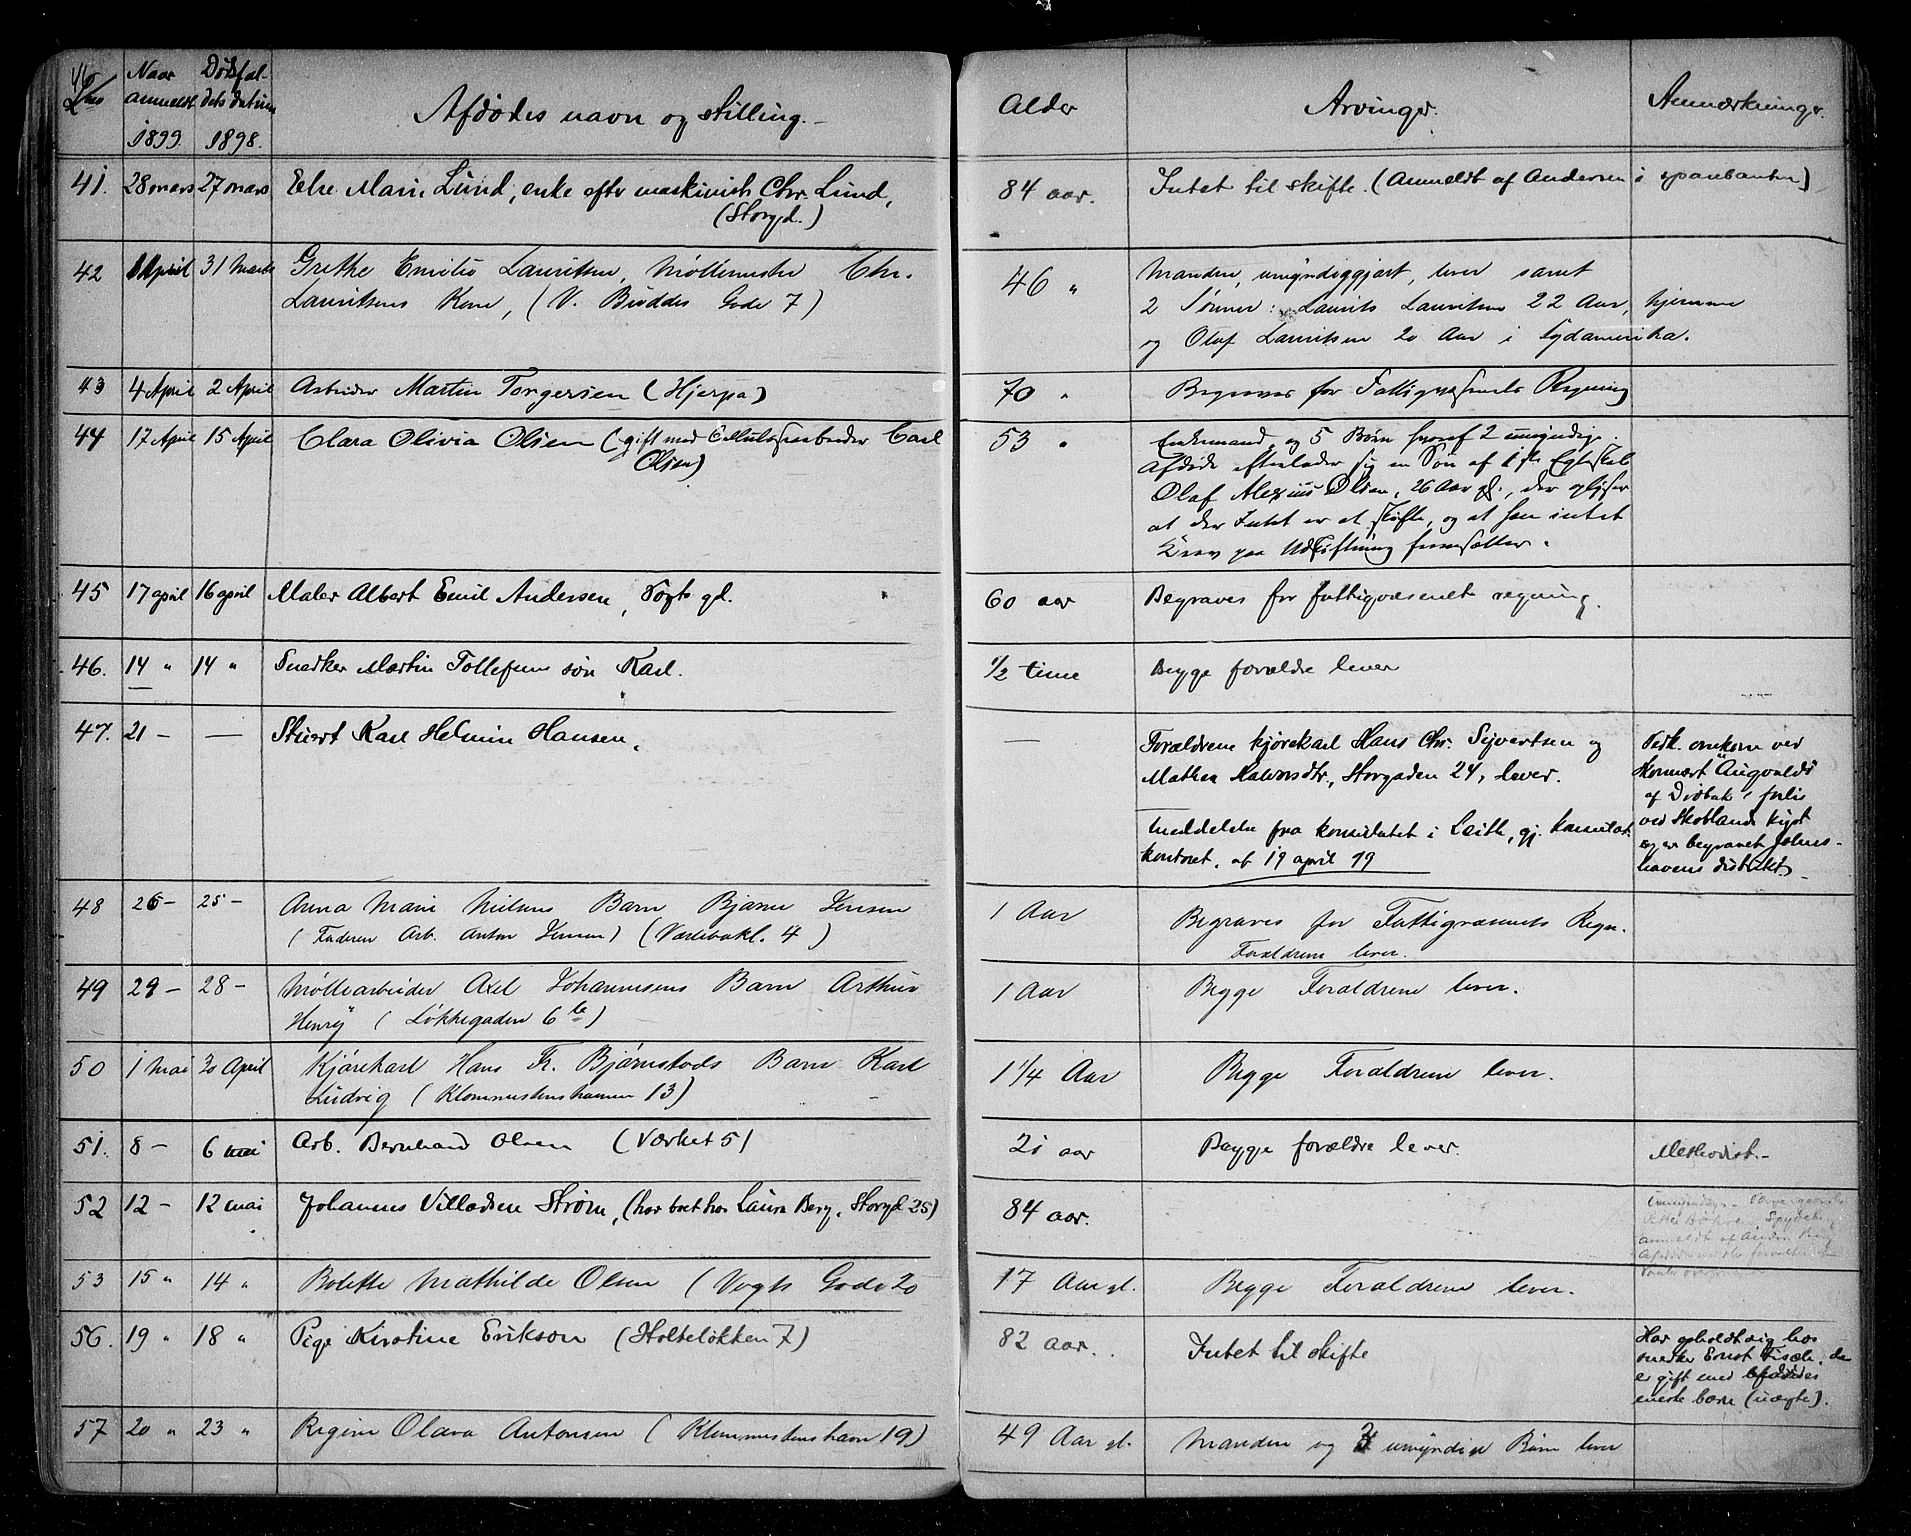 46
Lno
Naar anmeldt. 1899.
Dødsfaldets datum 1898.
Afdødes navn og stilling.
Alder
Arvinger.
Anmærkninger.
41. 28 mars 27 mars Else Marie Lund, enke efter maskinist Chr. Lund,
(Storgd.)
84 aar. Intet til skifte. (Anmeldt af Andersen i sparebanken)
42 1 April 31 Marts Grethe Emilie Lauritsen, Møllemester Chr.
Lauritsens Kone, (V. Buddes Gade 7)
46 " Manden, umyndiggjort, lever samt
2 Sønner: Laurits Lauritsen 22 Aar, hjemme
og Olaf Lauritsen 20 Aar i Sydamerika.
43 4 April 2 April Arbeider Martin Torgersen (Hjerpa)
70 " Begraves for Fattigvæsenets Regning
44 17 April 15 April Clara Olivia Olsen (gift med Cellulosearbeider Carl
Olsen)
53 " Enkemand, og 5 Børn hvoraf 2 umyndige.
Afdøde efterlader sig en Søn af 1ste Egteskab
Olaf Alexius Olsen, 26 Aar gl., der oplyser
at der Intet er at skifte, og at han intet
Krav paa Udskiftning fremsætter.
45 17 april 16 april Maler Albert Emil Andersen, Vogts gd.
60 aar Begraves for fattigvæsenet regning.
46. 14 " 14 " Snedker Martin Tollefsens søn Karl.
1/2 time Begge forældre lever
47. 21 – — Stuert Karl Helmin Hansen.
— Forældrene kjørekarl Hans Chr. Sivertsen og
Mathea Halvorsdtr., Storgaden 24, lever.
Meddelelse fra konsulatet i Leith, gj. konsulat
kontoret, af 19 april 99
Vedk. omkom ved
skonnert "Augvald"
af Drøbak's forlis
ved Skotlands kyst
og er begravet Johns-
havens distrikt.
48 26 – 25 – Anna Marie Nielsens Barn Bjarne Jensen
(Faderen Arb. Anton Jensen) (Værlebakl. 4)
1 Aar Begraves for Fattigvæsenets Regn.
Forældrene lever.
49 29 – 28 – Møllearbeider Axel Johannesens Barn Arthur
Henry (Løkkegaden 6 )
1 Aar Begge Forældrene lever.
50 1 Mai 30 April Kjørekarl Hans Fr. Bjørnstads Barn Karl
Ludvig (Klommestenshaven 13)
1 1/4 Aar Begge Forældrene lever.
51. 8 – 6 mai Arb. Bernhard Olsen (Værket 5)
21 aar Begge forældre lever. Methodist.–
52 12 – 12 mai Johannes Villadsen Strøm, (har boet hos Laura Berg, Storgd 25)
84 aar.
anmeldt af
53 15 " 14 " Bolette Mathilde Olsen (Vogts Gade 20
17 Aar gl. Begge Forældrene lever.
56. 19 " 18 " Pige Kirstine Erikson (Holteløkken 7)
82 aar. Intet til skifte
Har opholdt sig hos
snedker Ernst Fisch, der
er gift med afdødes
eneste barn (uægte).
57 20 " 23 " Regine Olava Antonsen (Klommestenshavn 19)
49 Aar gl. Manden og 3 umyndige Børn lever